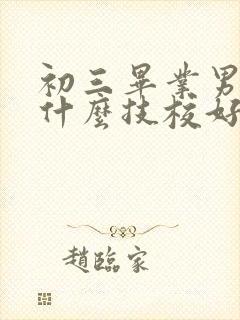 初三畢業男
什麼技校好
趙臨家